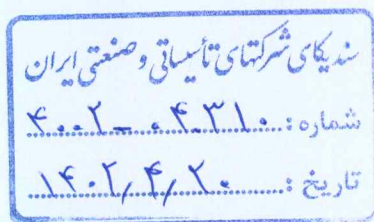 سندیکای شرکتهای تأسیساتی و صنعتی ایران
شماره: ۴۰۰۲-۰۴.۳۱۰
تاریخ: ۱۴۰۲/۴/۲۰